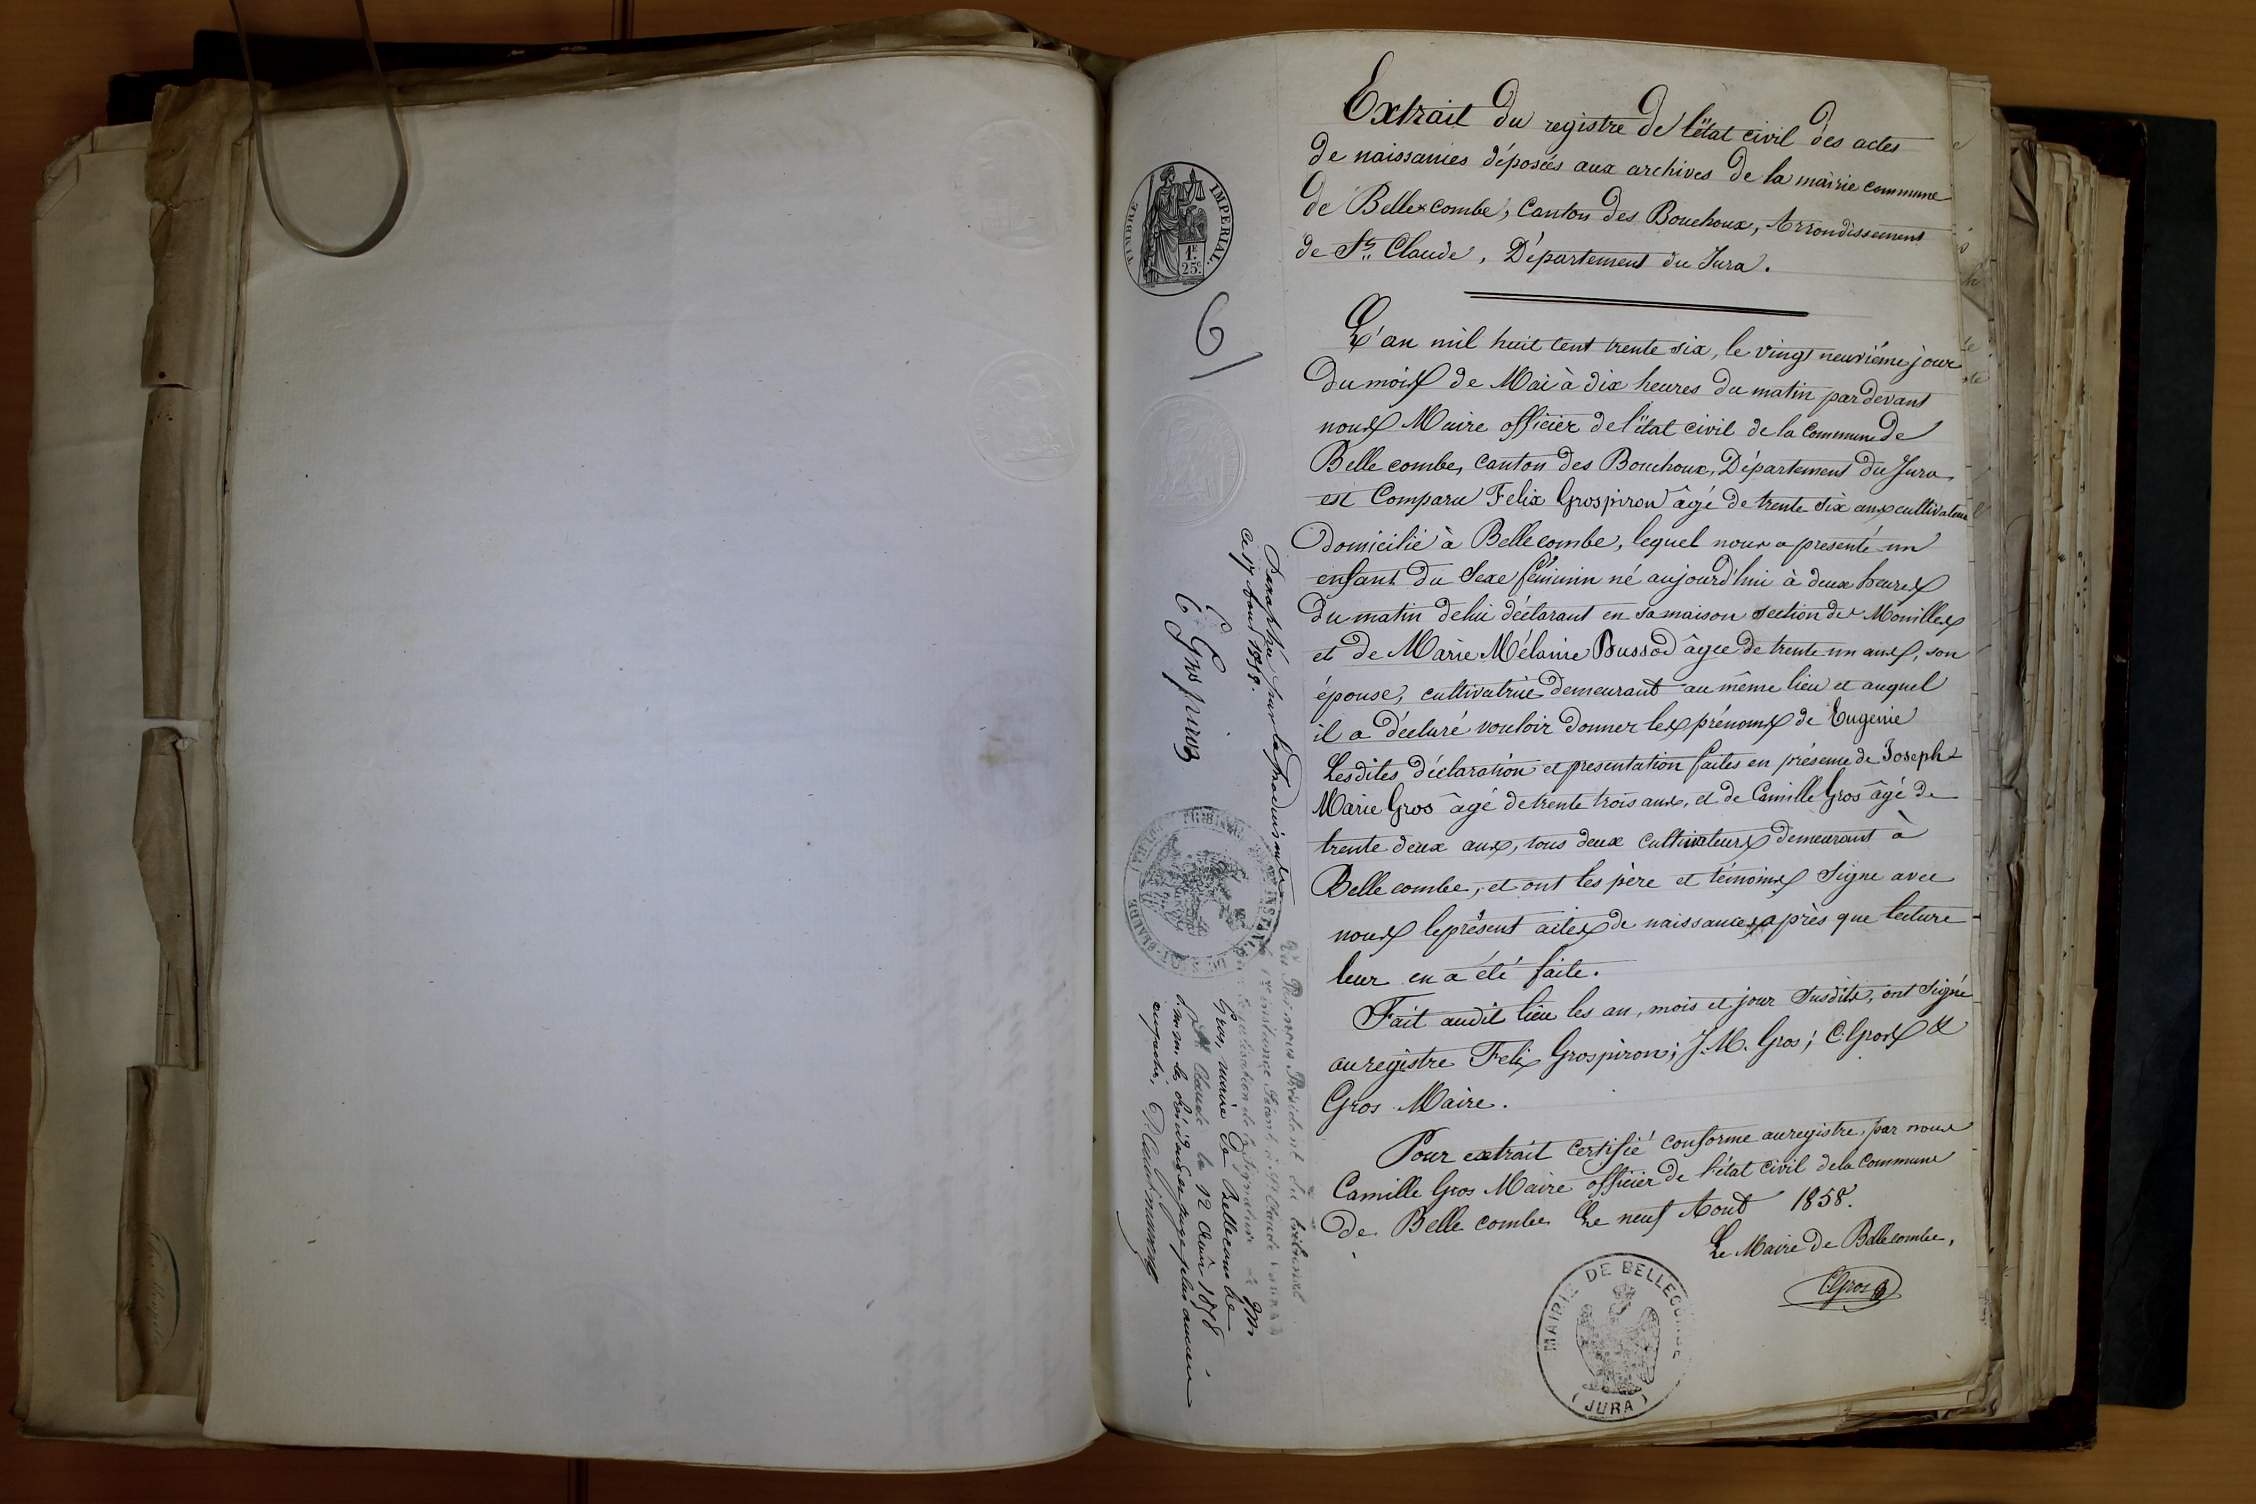 Extrait du registre de l'état civil des actes
de naissances déposées aux archives de la mairie commune
de Bellecombe, Canton des Bouchoux, Arrondissement
de St Claude, Département du Jura.
TIMBRE IMPERIAL.
1F.
25c
6
L'an mil huit cent trente six, le vingt neuvième jour
du mois de Mai à dix heures du matin par devant
nous Maire officier de l'état civil de la Commune de
Belle combe, canton des Bouchoux, Département du Jura
est Comparu Felix Grospiron âgé de trente six ans cultivateur
domicilié à Belle combe, lequel nous a presenté un
enfant du Sexe féminin né aujourd'hui à deux heures
du matin de lui déclarant en sa maison section des Mouilles
et de Marie Mélanie Bussod âgée de trente un ans, son
épouse, cultivatrice demeurant au même lieu et auquel
il a déclaré vouloir donner les prénoms de Eugenie
Lesdites déclaration et presentation faites en présence de Joseph
Marie Gros âgé de trente trois ans, et de Camille Gros âgé de
trente deux ans, tous deux cultivateurs demeurant à
Belle combe, et ont les père et témoins Signé avec
nous le présent actes de naissances après que lecture
leur en a été faite.
Fait audit lieu les an, mois et jour Susdits, ont Signé
au registre Felix Grospiron; J.M. Gros; C. Gros &
Gros Maire.
Pour extrait certifié conforme au registre, par nous
Camille Gros Maire officier de l'état civil de la Commune
de Belle combe Le neuf Aout 1858.
Le Maire de Bellecombe,
CGros
MAIRIE DE BELLECOMBE
(JURA)
Paraphée par la
ce 17 Aout 1858.
E Grospiron
Vu Par nous Président du tribunal
de 1re instance Séant à St Claude
la légalisation de la signature de Mr
Gros, maire de Bellecombe
St Claude le 12 Août 1858